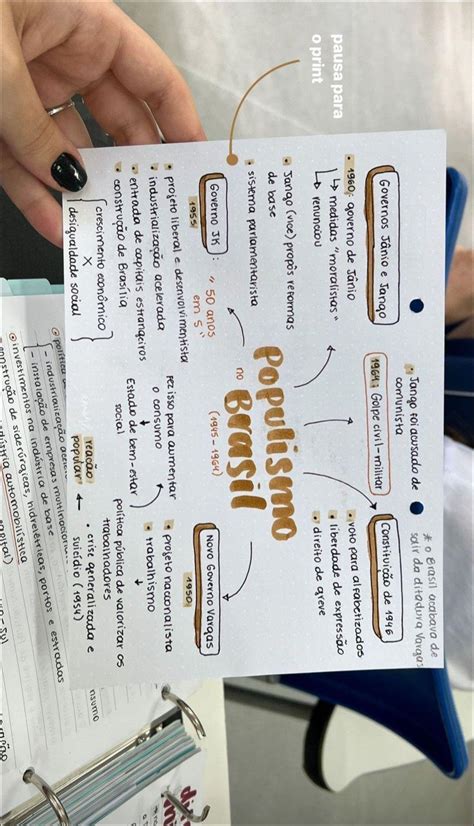 pausa para
o print
* o Brasil acabava de
sair da ditadura Vargas
Governos Jânio e Jango
• 1960: governo de Jânio
↳ medidas "moralistas"
↳ renunciou
• Jango (vice) propôs reformas
de base
• sistema parlamentarista
• Jango foi acusado de
comunista
1964: Golpe civil-militar
Constituição de 1946
• voto para alfabetizados
• liberdade de expressão
• direito de greve
Populismo
no Brasil
(1945-1964)
Governo JK : "50 anos
em 5"
1955
• projeto liberal e desenvolvimentista
• industrialização acelerada
• entrada de capitais estrangeiros
• construção de Brasília
crescimento econômico
X
desigualdade social
Novo Governo Vargas
1950
• projeto nacionalista
• trabalhismo
política pública de valorizar os
trabalhadores
fez isso para aumentar
o consumo
Estado de bem-estar
social
• crise generalizada e
suicídio (1954)
reação
popular
- industrialização
- instalação de empresas
investimentos na indústria de base
construção de siderúrgicas, hidrelétricas, portos e estradas
automobilística